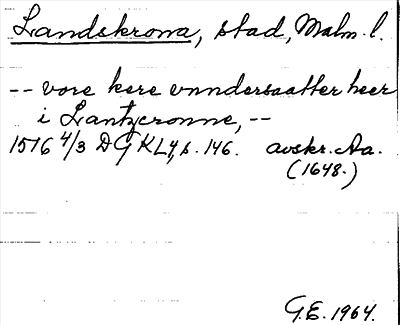 Landskrona, stad, Malm. l.
-- vore kere vnndersaatter heer
i Lantzcronne, --
1516 4/3 DGKL4, s. 146. avskr. Aa.
(1648.)
G.E. 1964.